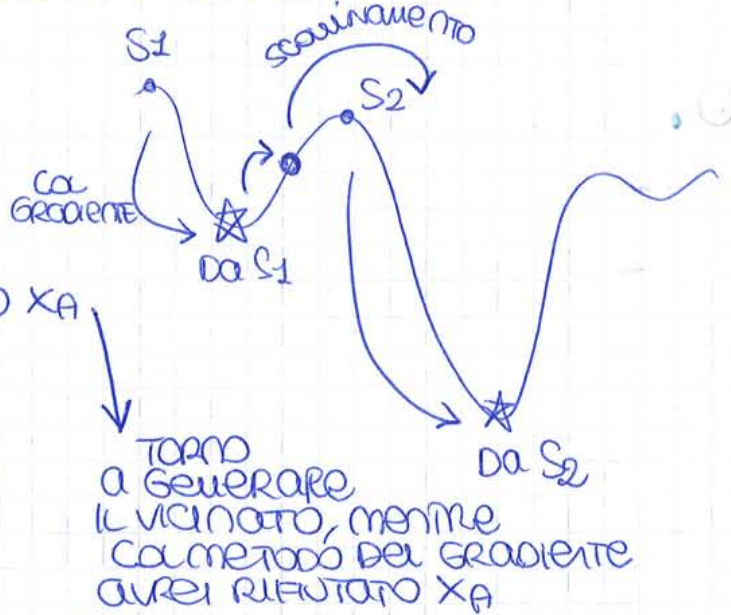 S1
scavinamento
S2
COL
GRADIENTE
Da S1
O XA
Da S2
TORNO
a GENERARE
IL VICINATO, MENTRE
COL METODO DEL GRADIENTE
AVREI RIFIUTATO XA